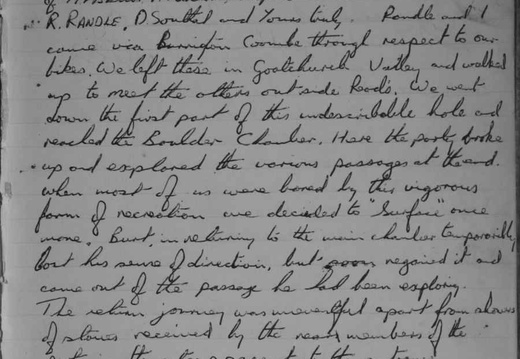 R. RANDLE, D Southel and Yours truly. Randle and I
came via Burrington Coombe through respect to our
bikes. We left these in Goatchurch Valley and walked
up to meet the others outside Read's. We went
down the first part of this indescribable hole and
reached the Boulder Chamber. Here the party broke
up and explored the various passages at the end.
When most of us were bored by this vigorous
form of recreation we decided to "Surface" once
more. Burt, in returning to the main chamber temporarily
lost his sense of direction, but soon regained it and
came out of the passage he had been exploring.
The return journey was uneventful apart from showers
of stones received by the rear members of the